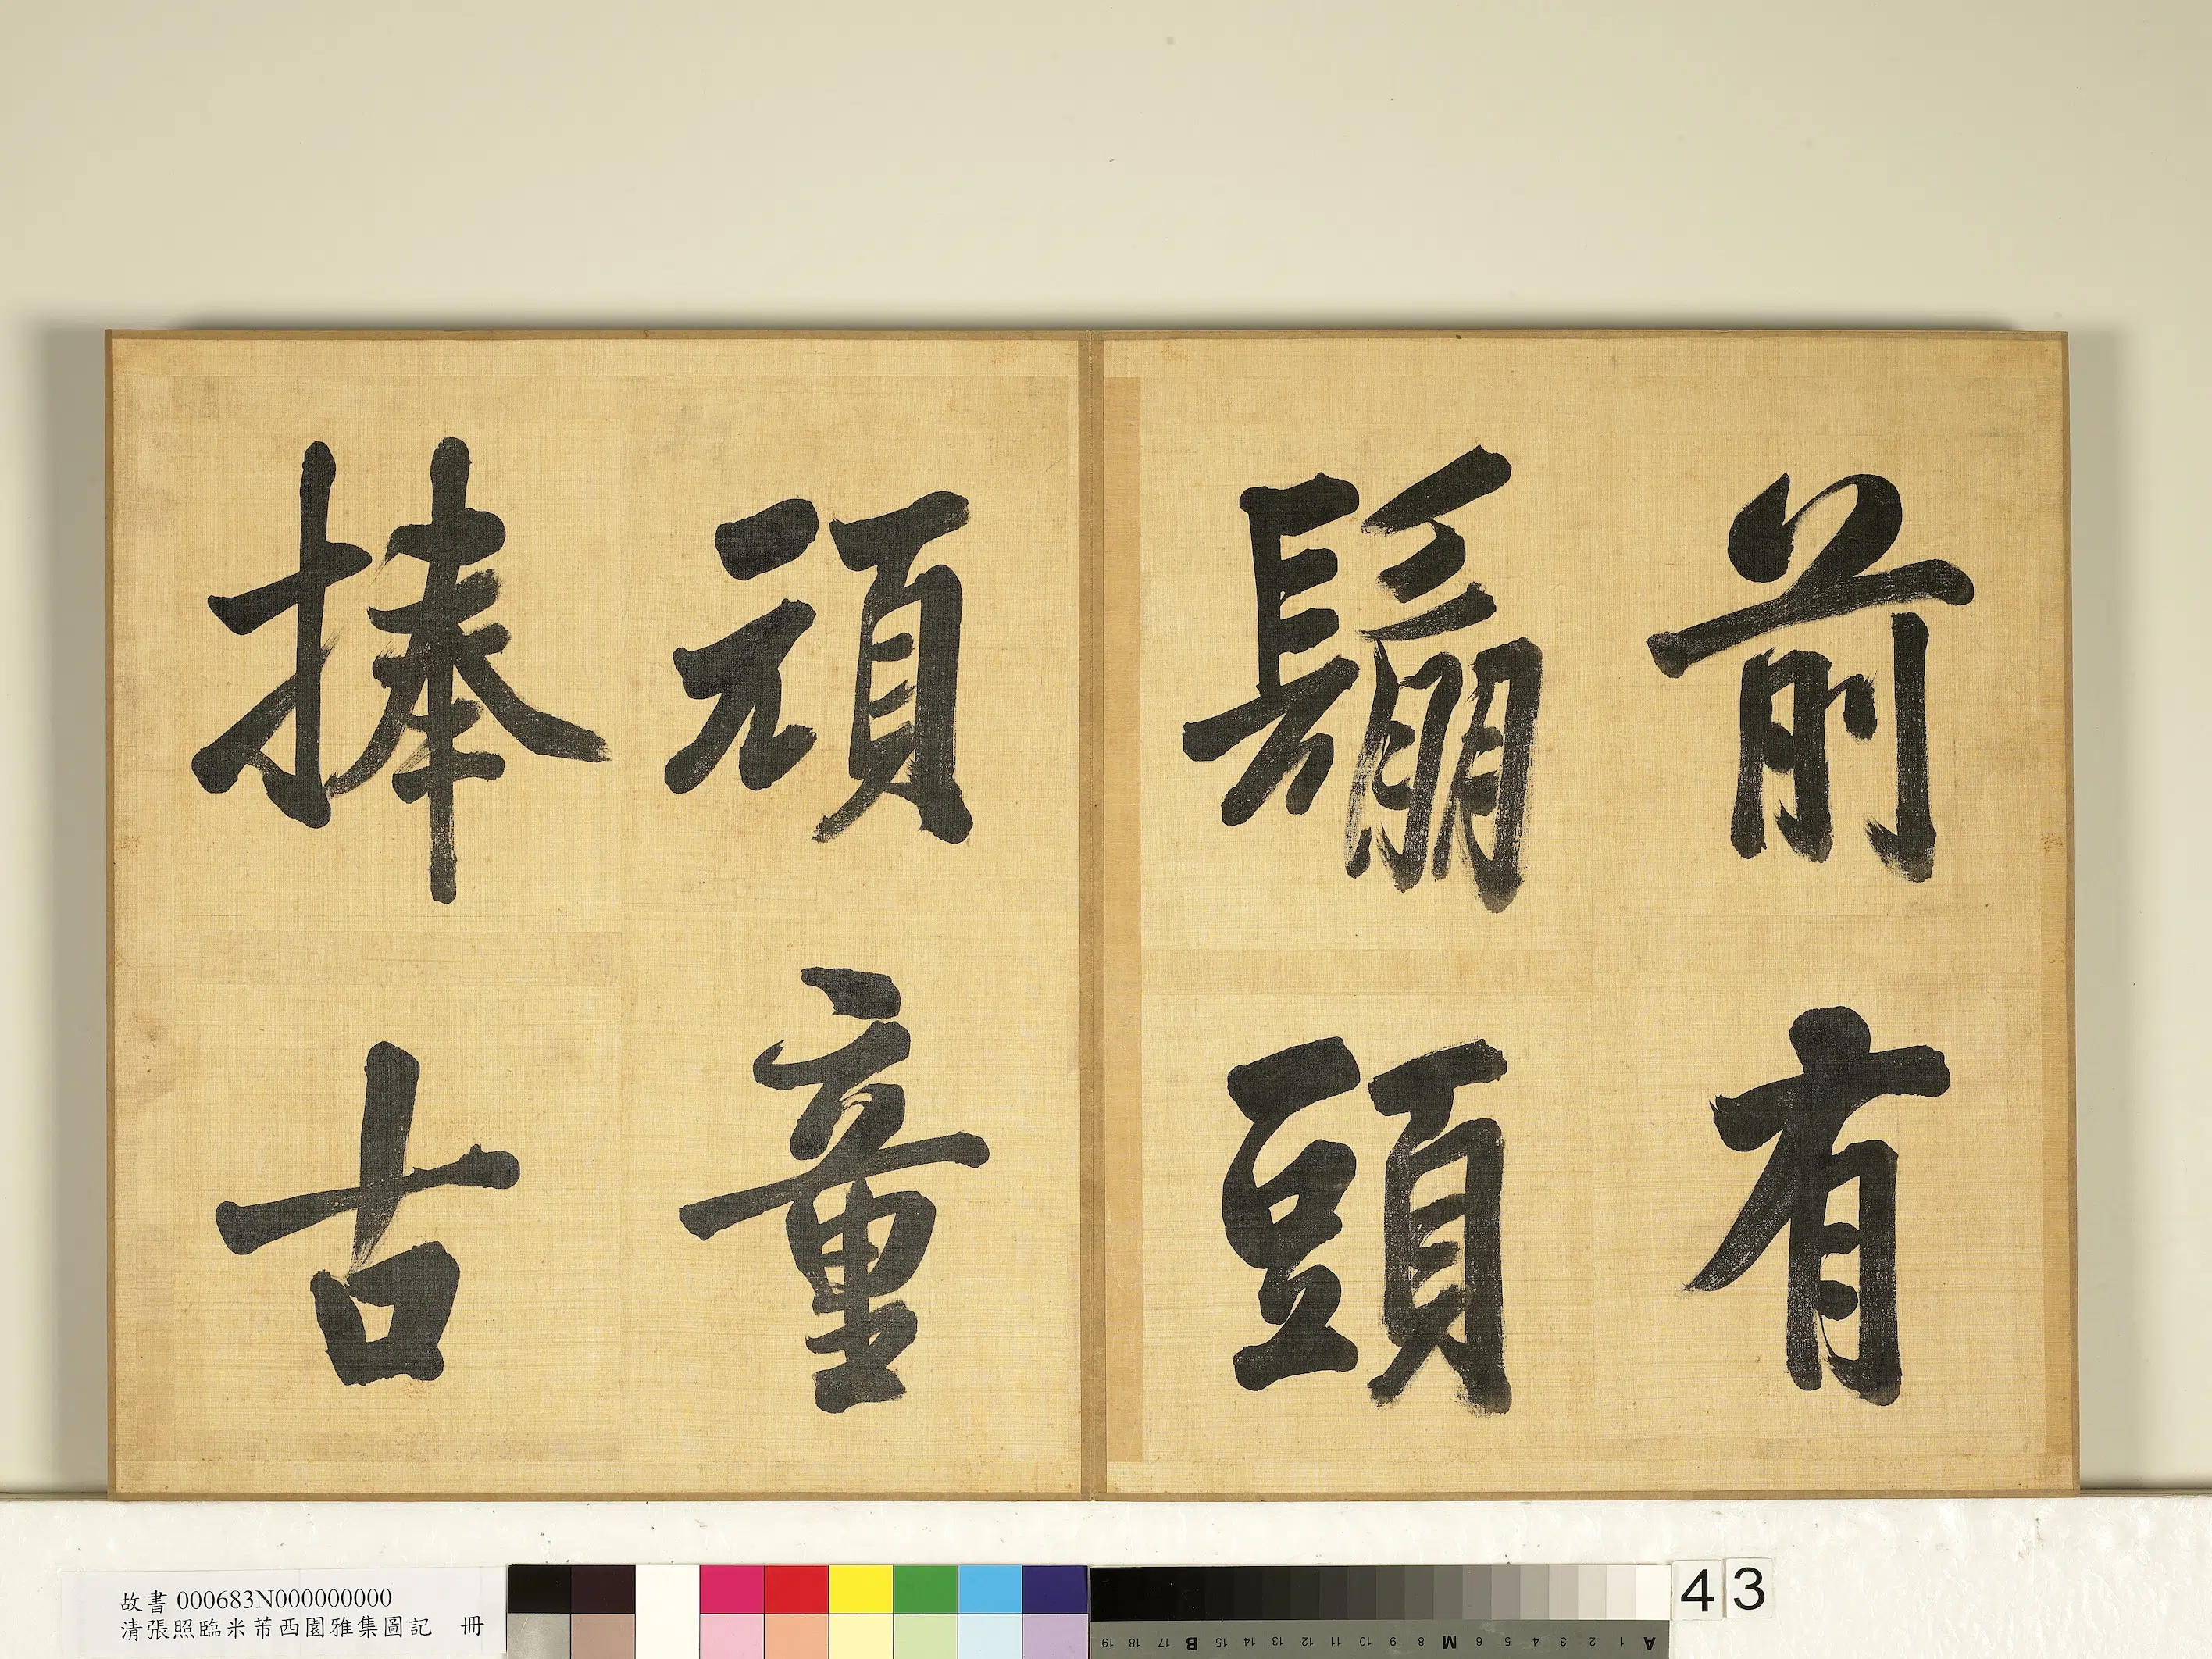 前有
鬅頭
頑童
捧古
故書 000683N000000000
清張照臨米芾西園雅集圖記 冊
A 1 2 3 4 5 6 M 8 9 10 11 12 13 14 15 B 17 18 19
43